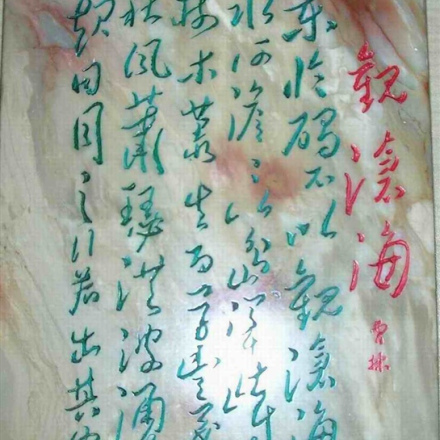 觀滄海
曹操
東临碣石以觀滄海
水何澹澹山島竦峙
樹木叢生百草豐茂
秋風蕭瑟洪波涌
起日月之行若出其中